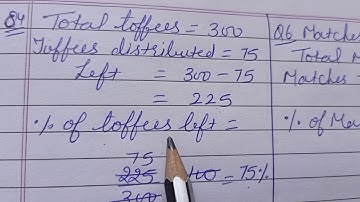 Q4 Total toffees = 300
Toffees distributed = 75
Left = 300 - 75
= 225
% of toffees left =
75
225 100 = 75%
300
Q6 Matches
Total M
Matches
% of Ma